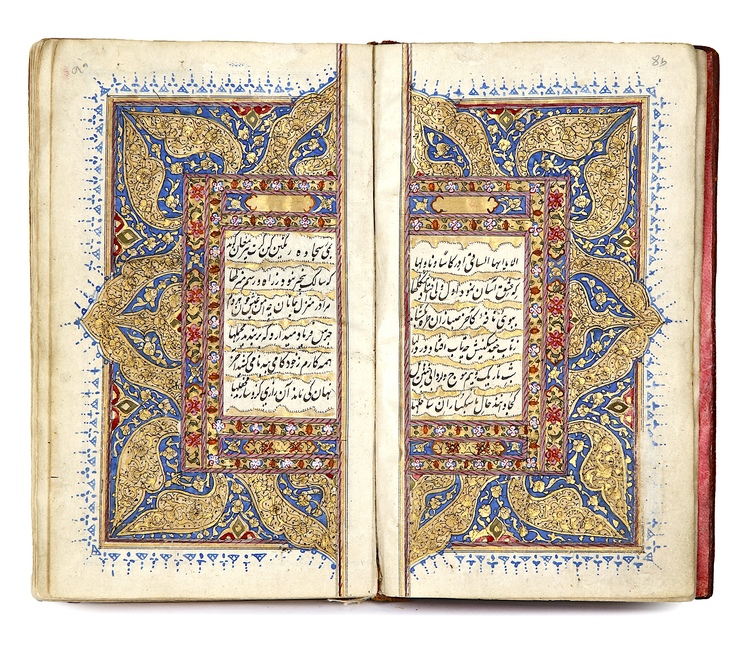 8b
الا یا ایها الساقی ادر کاسا و ناولها
که عشق آسان نمود اول ولی افتاد مشکلها
ببوی نافه کاخر صبا زان طره بگشاید
مشکینش چه تاب افتاد در دلها
شب تاریک و بیم موج و دریائی چنین
کجا دانند حال ما سبکساران ساحلها
بمی سجاده رنگین کن گرت پیر مغان گوید
که سالک بیخبر نبود ز راه و رسم منزلها
مرا در منزل جانان چه امن عیش چون هر دم
جرس فریاد میدارد که بربندید محملها
همه کارم ز خود کامی به بدنامی کشید آخر
نهان کی ماند آن رازی کزو سازند محفلها